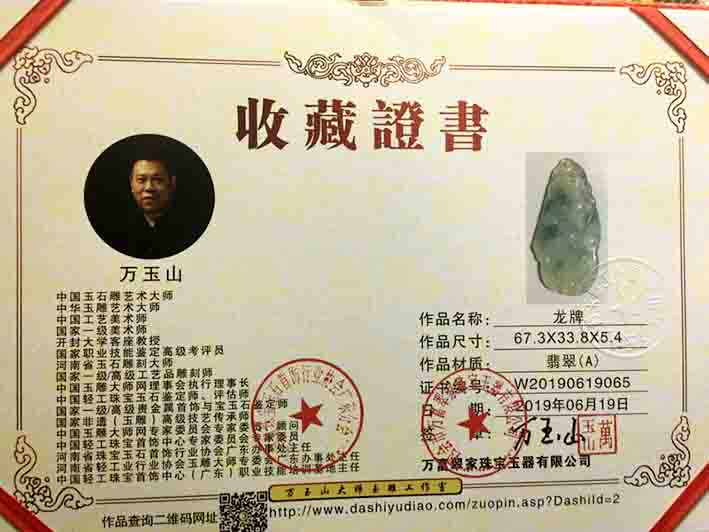 收藏證書
万玉山
中国玉石雕艺术大师
中华玉雕艺术大师
中国工艺美术师
国家一级美术师
开封大学客座教授
国家职业技能鉴定高级考评员
河南省玉石雕刻大师
国家一级/高级工艺品雕刻师
中国玉雕大师网理事会执行理事长
中国轻工珠宝玉石鉴定师、评估师
国家一级/高级贵金属首饰与宝玉石鉴定师
国家非遗（玉雕）高级技艺传承师
中国玉雕大师网专家委员会专家顾问
中国轻工珠宝首饰中心专家委员会专家委员
河南省珠宝玉石首饰行业协会广东办事处主任
河南省轻工业行业协会玉雕大师专委会广东办事处主任
中国轻工珠宝首饰中心（广东）职业技能培训基地主任
作品名称: 龙牌
作品尺寸: 67.3X33.8X5.4
作品材质: 翡翠(A)
证书编号: W20190619065
日 期: 2019年06月19日
万玉山
萬玉山
万富翠家珠宝玉器有限公司
万玉山大师玉雕工作室
作品查询二维码网址
http://www.dashiyudiao.com/zuopin.asp?DashiId=2